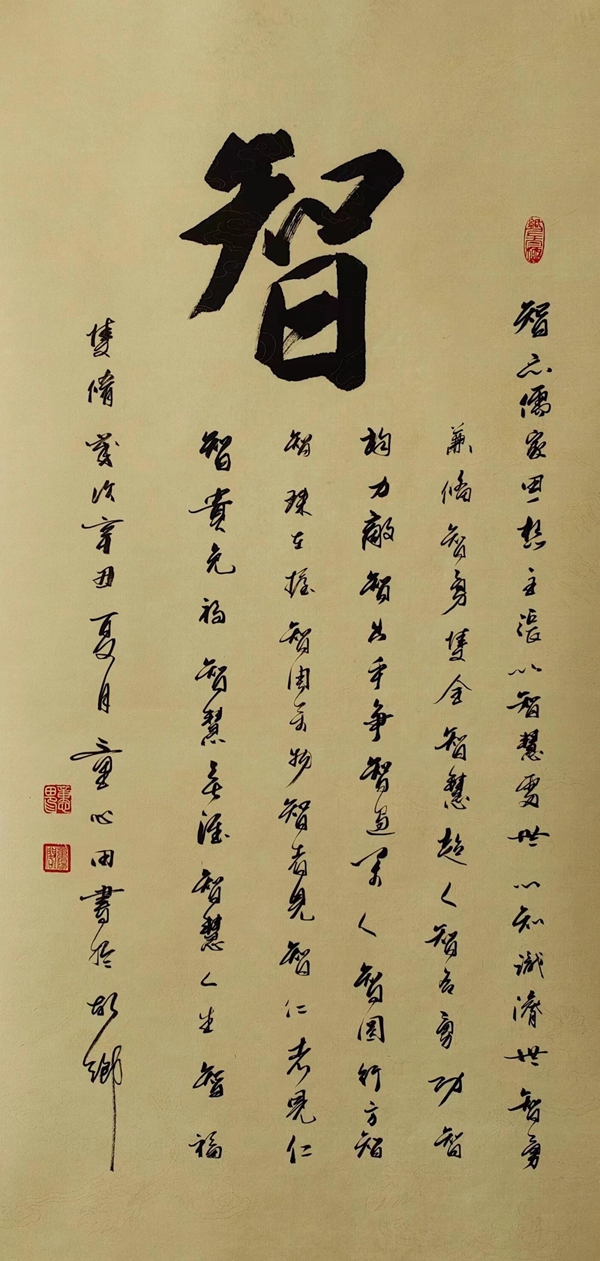 智
智亦儒家思想主張以智慧處世以知識濟世智勇
兼備智勇雙全智慧超人智名勇功智
均力敵智出手爭智過萬人智圓行方智
智珠在握智周萬物智者見智仁者見仁
智貴免禍智慧無涯智慧人生智福
雙脩歲次辛丑夏月童心田書於故鄉